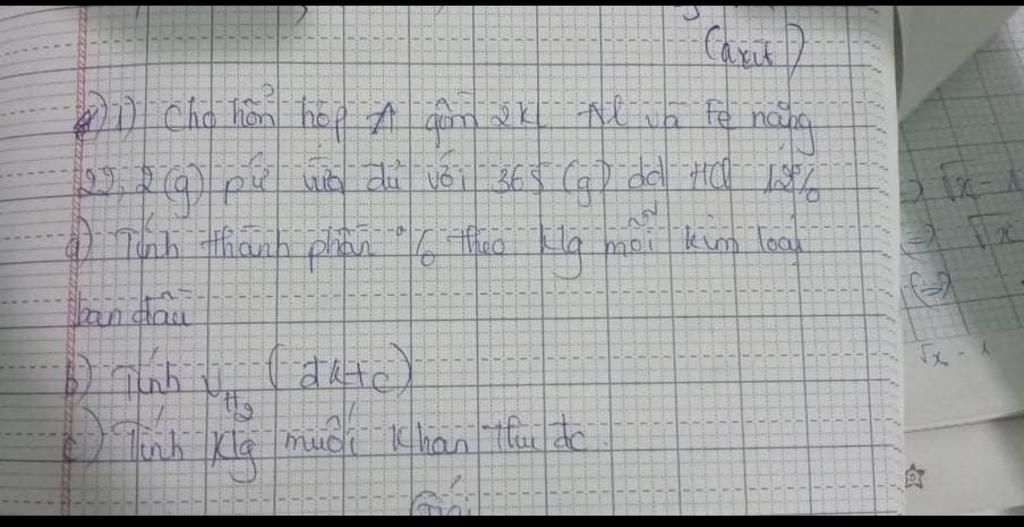 (axit)
1) Cho hỗn hợp A gồm 2KL Al và Fe nặng
22,2(g) pứ vừa đủ với 365(g) dd HCl 12%
a) Tính thành phần % theo klg mỗi kim loại
ban đầu
b) Tính V H2 (đktc)
c) Tính klg muối khan thu đc.
√x - 1
(=) √x
(=)
√x - 1